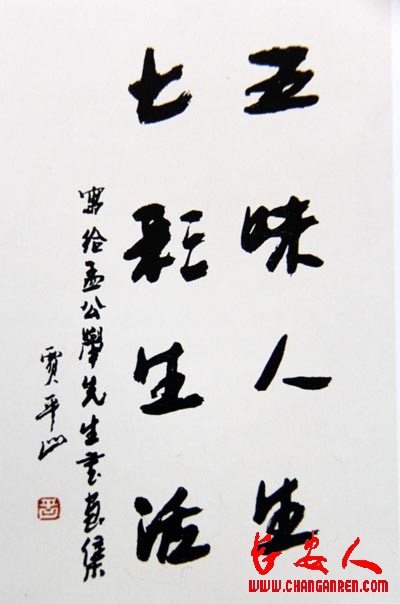 五味人生
七彩生活
寫给孟公舉先生書画集
賈平凹
长安人
WWW.CHANGANREN.COM